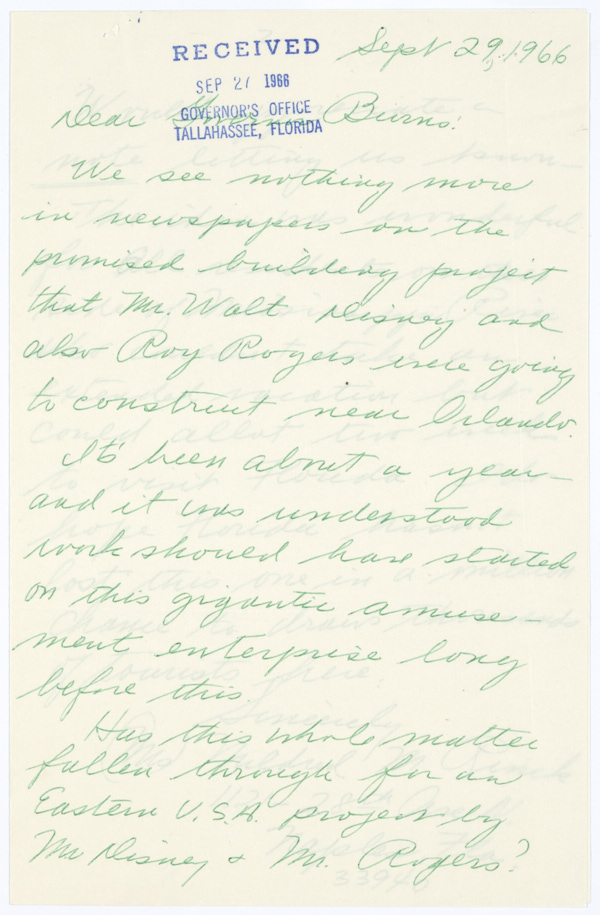 RECEIVED
SEP 27 1966
GOVERNOR'S OFFICE
TALLAHASSEE, FLORIDA
Sept 29, 1966
Dear Governor Burns:
We see nothing more
in newspapers on the
promised building project
that Mr. Walt Disney and
also Roy Rogers were going
to construct near Orlando.
It's been about a year—
and it was understood
work should have started
on this gigantic amuse-
ment enterprise long
before this.
Has this whole matter
fallen through for an
Eastern U.S.A. project by
Mr Disney & Mr. Rogers?